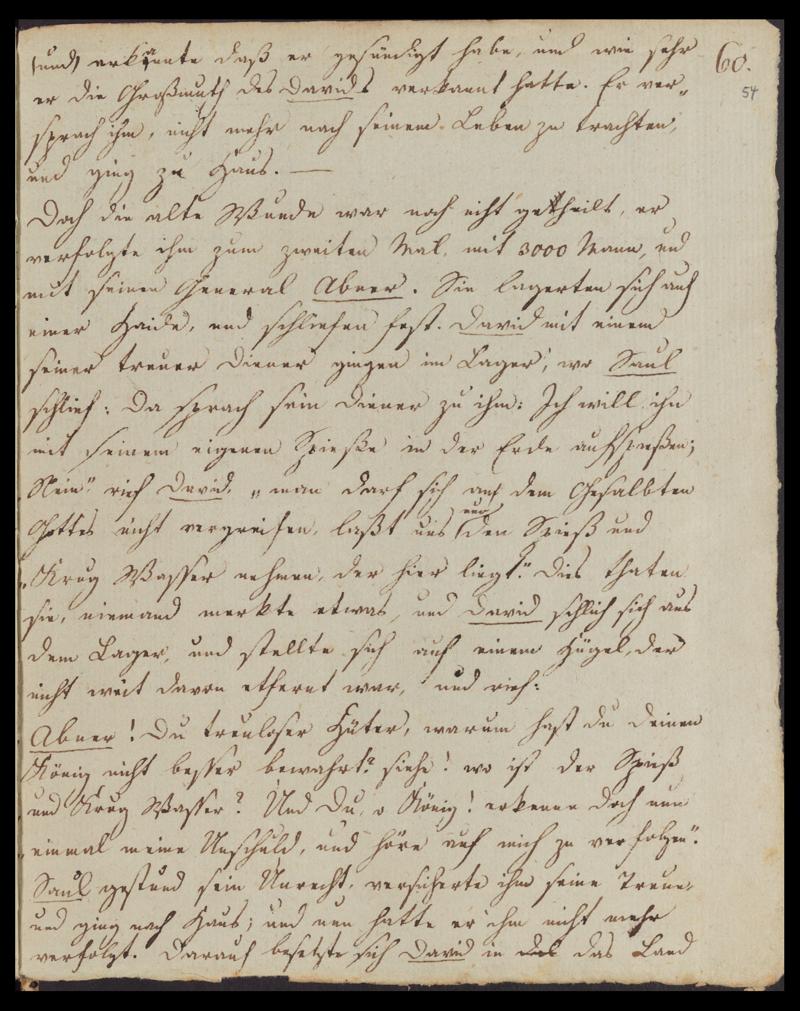 (und) erkannte daß er gesündigt habe, und wie sehr
60.
54
er die Großmuth des Davids verkannt hatte. Er ver-
sprach ihm, nicht mehr nach seinem Leben zu trachten,
und ging zu Haus. —
Doch die alte Wunde war noch nicht getheilt, er
verfolgte ihm zum zweiten Mal, mit 3000 Mann, und
mit seinen General Abner. Sie lagerten sich auf
einer Haide, und schliefen fest. David mit einem
seiner treuer Diener gingen im Lager, wo Saul
schlief: Da sprach sein Diener zu ihm: Ich will ihn
mit seinem eigenen Spieße in der Erde aufspießen;
Nein" rief David, „man darf sich auf dem Gesalbten
Gottes nicht vergreifen, laßt uns nur den Spieß und
„Krug Wasser nehmen, der hier liegt." Dies thaten
sie, niemand merkte etwas, und David schlich sich aus
dem Lager, und stellte sich auf einem Hügel, der
nicht weit davon etfernt war, und rief:
Abner! Du treuloser Hüter, warum hast du deinen
König nicht besser bewahrt? siehe! wo ist der Spieß
und Krug Wasser? Und Du, o König! erkenne doch nun
„einmal meine Unschuld, und höre auf mich zu verfolgen".
Saul gestund sein Unrecht, versicherte ihm seine Treue,
und ging nach Haus; und nun hatte er ihm nicht mehr
verfolgt. Darauf besetzte sich David in das das Land